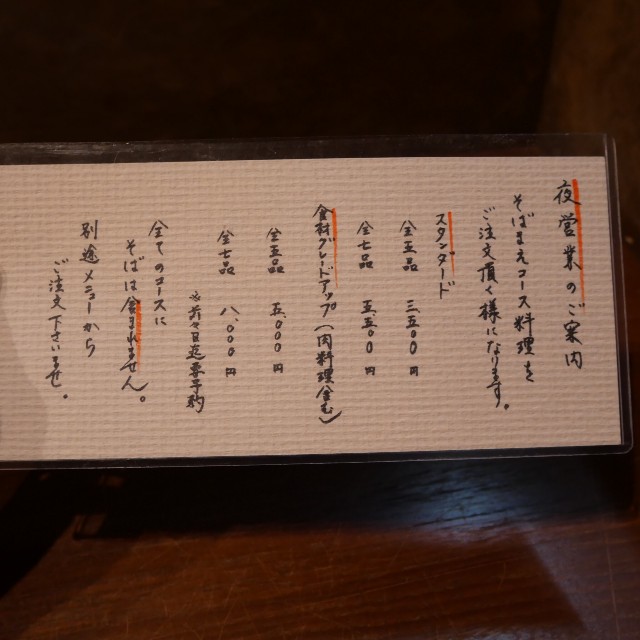 夜営業のご案内
そばまえコース料理を
ご注文頂く様になります。
スタンダード
全五品 三、五〇〇円
全七品 五、五〇〇円
食材グレードアップ(肉料理含む)
全五品 五、〇〇〇円
全七品 八、〇〇〇円
※前々日迄要予約
全てのコースに
そばは含まれません。
別途メニューから
ご注文下さいませ。